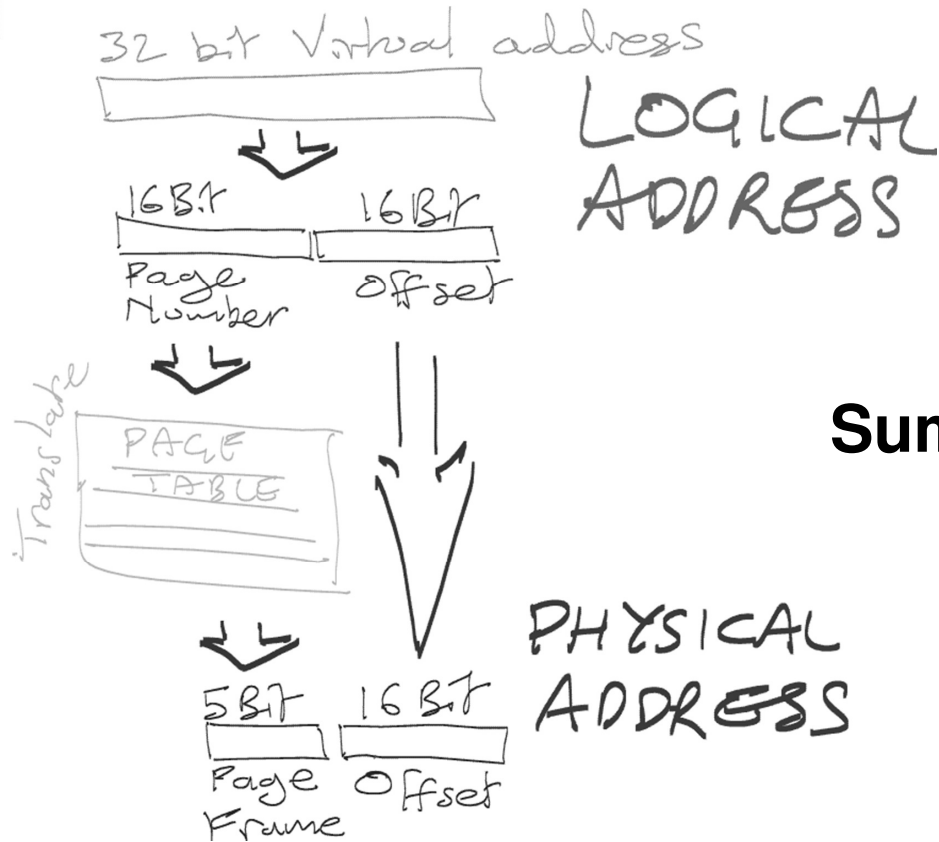 32 bit Virtual address
LOGICAL
ADDRESS
16Bit 16Bit
Page Number
Offset
Translate
PAGE
TABLE
Sum
PHYSICAL
ADDRESS
5Bit 16Bit
Page Frame
Offset